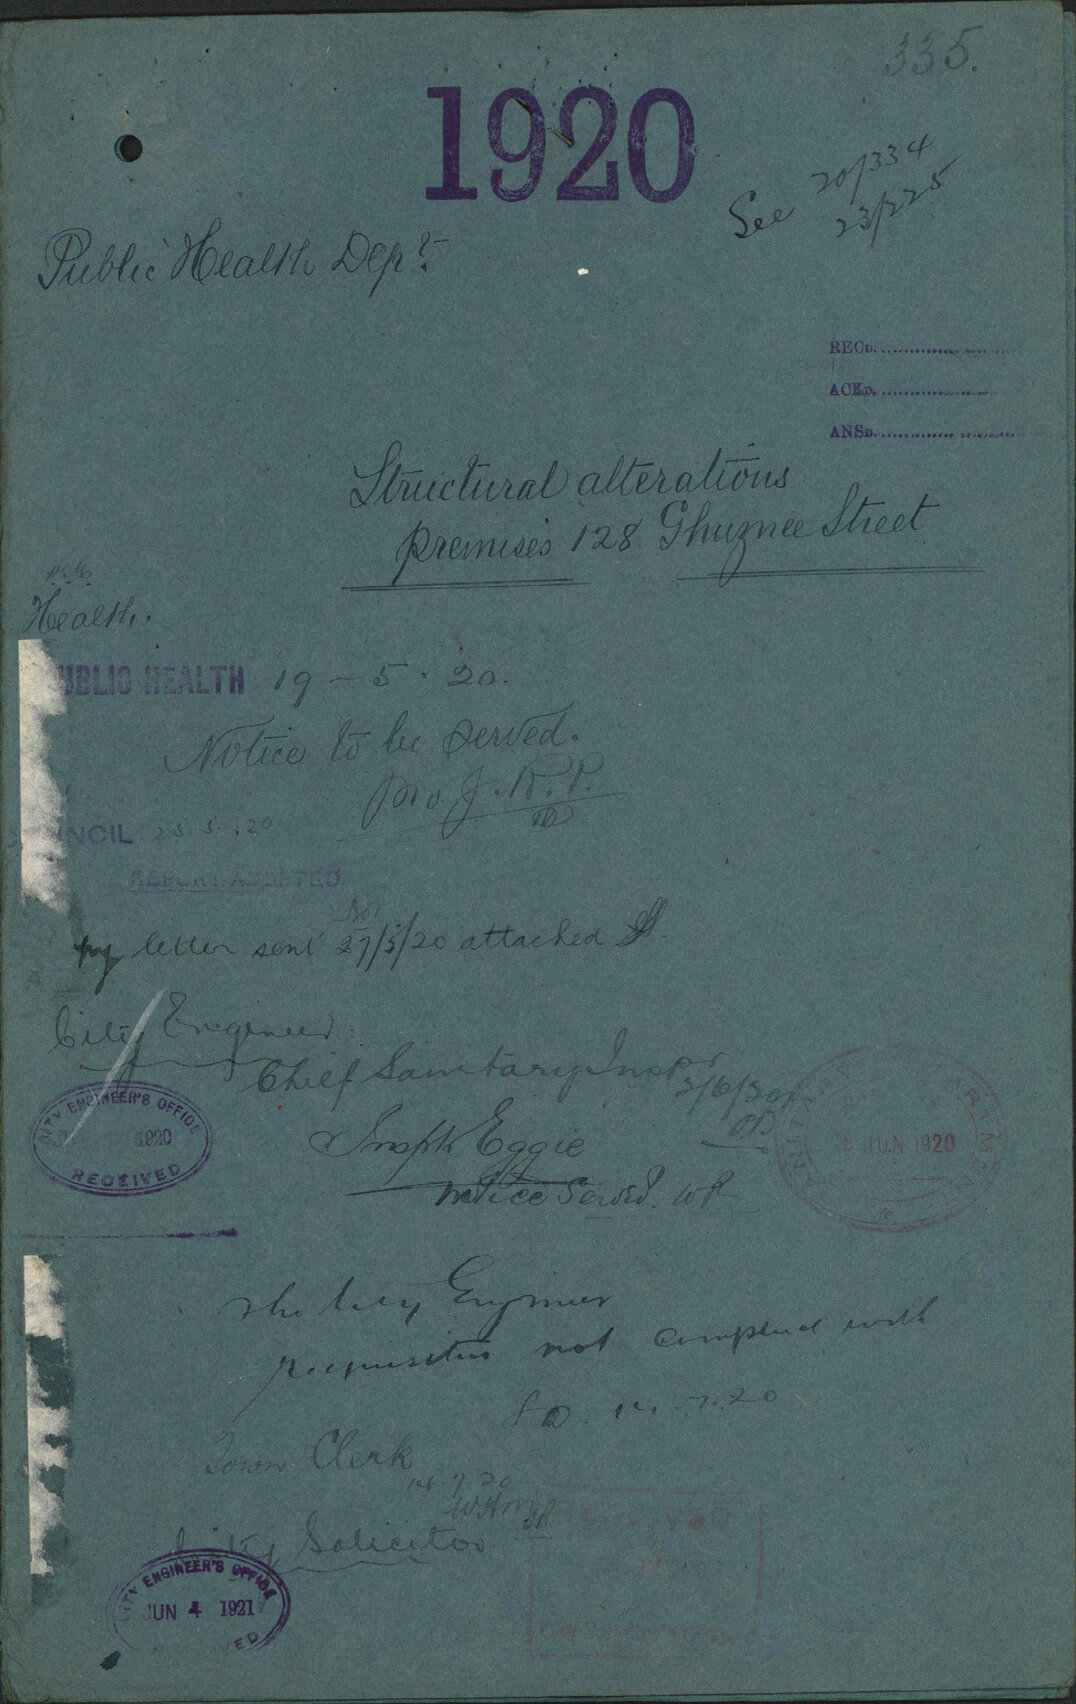 335.
1920
See 20/334
23/225
Public Health Dept.
RECD.
ACKD.
ANSD.
Structural alterations
premises 128 Ghuznee Street
Health.
UBLIC HEALTH 19-5.20.
Notice to be served.
pro J.R.P.
NCIL 25 5.20
REPORT ADOPTED
letter sent 27/5/20 attached
City Engineer
Chief Sanitary Inspr
2/6/20
CITY ENGINEER'S OFFICE
1920
RECEIVED
JUN 1920
Insptr Eggie
Notice Served. WR
The City Engineer
requisition not complied with
14.7.20
Town Clerk
14.7.20
City Solicitor
CITY ENGINEER'S OFFICE
JUN 4 1921
VED